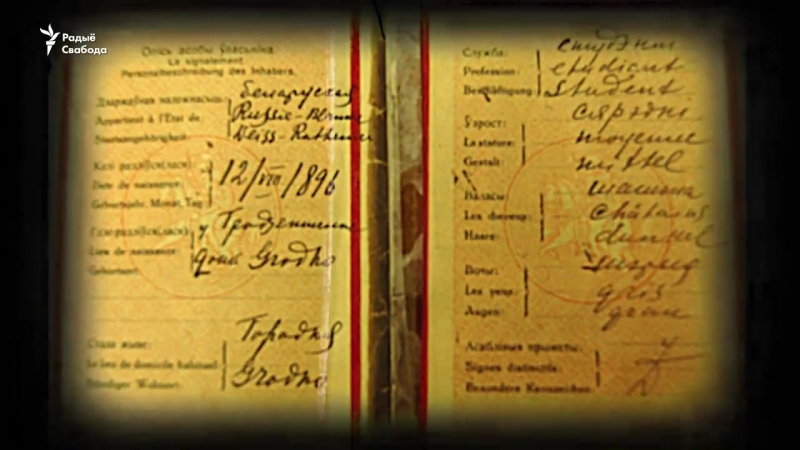 Радыё
Свабода
Опіс асобы ўласьніка.
Le signalement.
Personalbeschreibung des Inhabers.
Дзяржаўная належнасьць:
Appartient à l'État de
Staatsangehörigkeit:
Беларуская
Russie-Blanche
Weiss-Ruthenien
Калі радзіўся(лася):
Date de naissance:
Geburtsjahr, Monat, Tag:
12/VIII/1896
Гдзе радзіўся(лася):
Lieu de naissance:
Geburtsort:
у Гродзеншчыне
Grodno
Стала жыве:
Le lieu de domicile habituel:
Ständiger Wohnort:
Городня
Grodno
Служба:
Profession:
Beschäftigung:
студэнт
étudiant
Student
Ўзрост:
La stature:
Gestalt:
сярэдні
moyenne
mittel
Валасы:
Les cheveux:
Haare:
châtains
dunkel
Вочы:
Les yeux:
Augen:
gris
grau
Асаблівыя прыметы:
Signes distinctifs:
Besondere Kennzeichen: